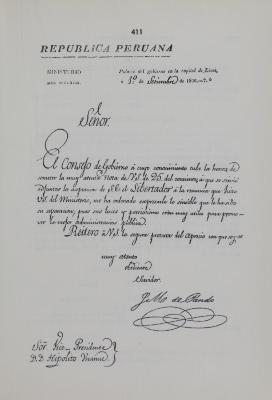 411
REPUBLICA PERUANA
MINISTERIO
Palacio del gobierno en la capital de Lima,
á 1º de Setiembre de 1826.-7.º
Señor.
El Consejo de Gobierno á cuyo conocimiento tube la honra de
someter la muy atenta Nota de V.S. de 25. del corriente, á que se sirvió
adjuntar la dispensa de S.E. el Libertador á la renuncia que hizo
V.S. del Ministerio, me ha ordenado expresarle lo sensible que le ha sido
su separacion, pues sus luces y patriotismo eran muy utiles para promo-
ver la mejor administracion pública.
Reitero á V.S. la segura protesta del aprecio con que soy
muy atento
obediente
Servidor.
J. M.ª de Pando
Sor. Vice-Presidente
D.D. Hipolito Unanue